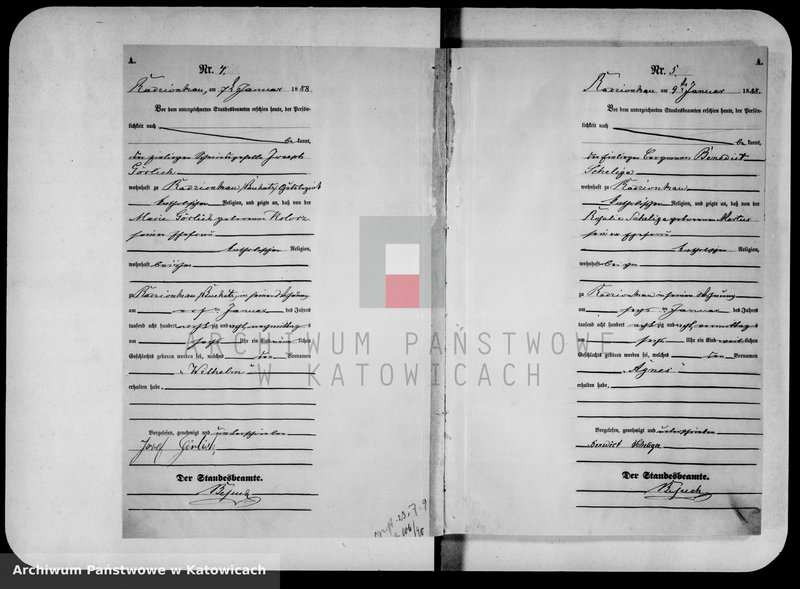 A.
Nr. 4.
Radzionkau, am Januar 1888.
Vor dem unterzeichneten Standesbeamten erschien heute, der Persön-
lichkeit nach
be kannt,
der Joseph
Görlich
wohnhaft zu Radzionkau
katholischer Religion, und zeigte an, daß von der
Marie Görlich geborenen
seiner Ehefrau
katholischer Religion,
wohnhaft bei ihm
zu Radzionkau in seiner Wohnung
am Januar des Jahres
tausend acht hundert achtzig und acht, nachmittags
um sechs Uhr ein Kind männlichen
Geschlechts geboren worden sei, welches den Vornamen
„Wilhelm"
erhalten habe.
Vorgelesen, genehmigt und unterschrieben
Josef Görlich
Der Standesbeamte.
A.
Nr. 5.
Radzionkau am 9ten Januar 1888.
Vor dem unterzeichneten Standesbeamten erschien heute, der Persön-
lichkeit nach
be kannt,
der Bergmann Benedict
Scheliga
wohnhaft zu Radzionkau
katholischer Religion, und zeigte an, daß von der
Rosalie Scheliga geborenen
seiner Ehefrau
katholischer Religion,
wohnhaft bei ihm
zu Radzionkau in seiner Wohnung
am sechs Januar des Jahres
tausend acht hundert achtzig und acht, vormittags
um sechs Uhr ein Kind weiblichen
Geschlechts geboren worden sei, welches den Vornamen
„Agnes"
erhalten habe.
Vorgelesen, genehmigt und unterschrieben
Benedict Scheliga
Der Standesbeamte.
ARCHIWUM PAŃSTWOWE
W KATOWICACH
Archiwum Państwowe w Katowicach